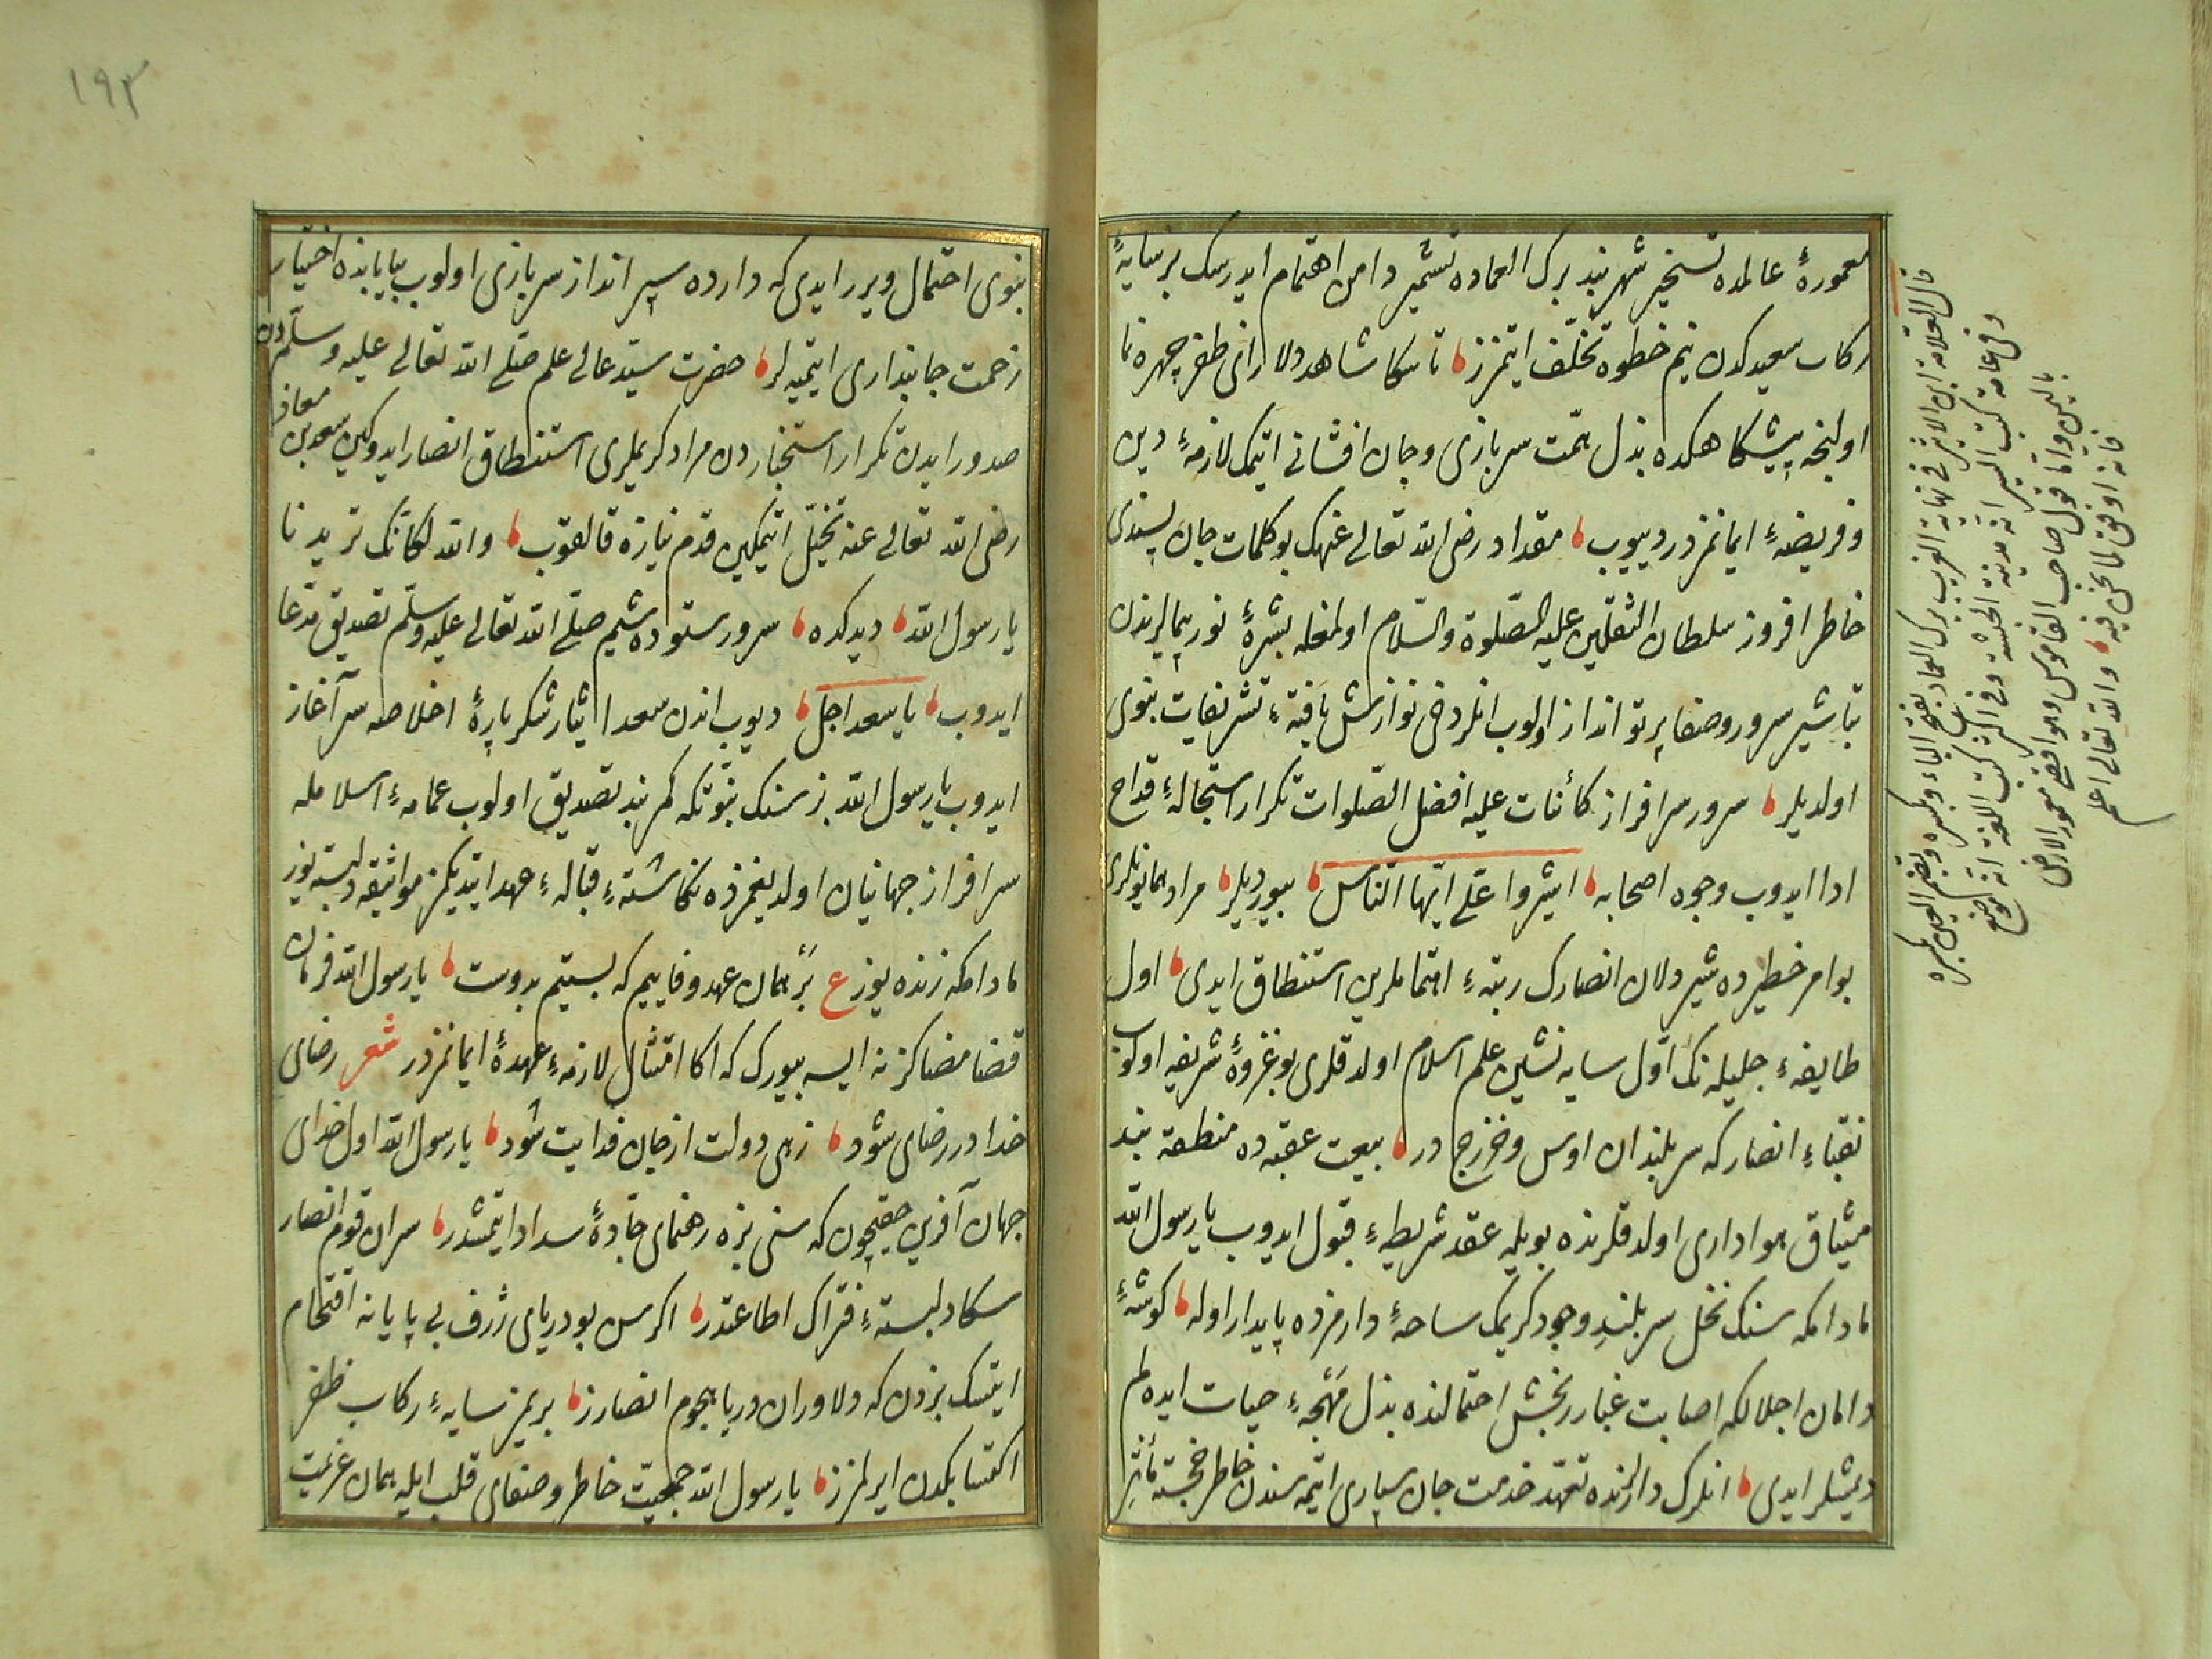 معمورۀ عالمده تسخیر شهر بند برک الغماده تشمیر دامن اهتمام ایدرسک بر سایۀ
رکاب سعیدکدن نیم خطوه تخلّف ایتمزز تا سکا شاهد دلارای ظفر چهره نما
اولنجه پیشکاهکده بذل همّت سربازی و جان افشانی ایتمک لازمۀ دین
و فریضۀ ایمانمزدر دییوب مقداد رضی الله تعالی عنهک بو کلمات جان پسندی
خاطر افروز سلطان الثقلین علیه الصّلوة والسّلام اولمغله بشرۀ نور پیمالرندن
تباشیر سرور و صفا پرتو انداز اولوب انلر دخی نوازش یافتۀ تشریفات نبوی
اولدیلر سرور سرافراز کائنات علیه افضل الصّلوات تکرار استجالۀ قداح
ادا ایدوب وجوه اصحابه اشیروا علّی ایّها النّاس بیوردیلر مراد همایونلری
بو امر خطیرده شیردلان انصارک رتبۀ اهتماملرین استنطاق ایدی اول
طایفۀ جلیله نک اوّل سایه نشین علم اسلام اولدقلری بو غزوۀ شریفه اولوب
نقباء انصار که سربلندان اوس و خزرج در بیعت عقبه ده منطقه بند
میثاق هواداری اولدقلرنده بویله عقد شریطۀ قبول ایدوب یا رسول الله
مادامکه سنک نخل سربلند وجود کریمک ساحۀ دارمزده پایدار اوله کوشۀ
دامان اجلالکه اصابت غبار رنجش احتمالنده بذل مهجۀ حیات ایده لم
دیمشلر ایدی انلرک دارلرنده تعهّد خدمت جان سپاری ایتمه سندن خاطر خجسته مأثر
قال العلامة ابن الاثیر فی نهایة الغریب برک الغماد بفتح الباء وبکسره وبضم الغین وبکسره
وفی عامة کتب السیر انه مدینة الحبشة وفی اکثر کتب اللغة انه موضع
بالیمن واما قول صاحب القاموس وهو اقصی معمور الارض
فانه اوفق لما نحن فیه والله تعالی اعلم
١٩٣
نبوی احتمال ویرر ایدی که دارده سپر انداز سربازی اولوب بیابانده اختیار
زحمت جانبداری ایتمیه لر حضرت سیّد عالی علم صلّی الله تعالی علیه وسلّمدن
صدور ایدن تکرار استخباردن مراد کریملری استنطاق انصار ایدوکین سعد بن معاذ
رضی الله تعالی عنه تخیّل ایتمکین قدم نیازه قالقوب والله لکأنک تریدنا
یا رسول الله دیدکده سرور ستوده شیم صلّی الله تعالی علیه وسلّم تصدیق مدّعا
ایدوب یا سعد اجل دیوب اندن سعد ایثار شکرپارۀ اخلاصه سرآغاز
ایدوب یا رسول الله بز سنک نبوّتکه کمر بند تصدیق اولوب عمامۀ اسلامله
سرافراز جهانیان اولدیغمزده نکاشتۀ قبالۀ عهد ایتدیکمز مواثیقه دلبسته یوز
مادامکه زنده یوز ع بر همان عهد و فاییم که بستیم بدوست یا رسول الله فرمان
قضا مضاکز نه ایسه بیورک که اکا امتثال لازمۀ عهدۀ ایمانمزدر شعر رضای
خدا در رضای شود زهی دولت ار جان فدایت شود یا رسول الله اول خدای
جهان آفرین حقیچون که سنی بزه رهنمای جادۀ سداد ایتمشدر سران قوم انصار
سکا دلبستۀ فتراک اطاعتدر اکر سن بو دریای ژرف بی پایانه اقتحام
ایتسک بزدن که دلاوران دریا هجوم انصارز بریمز سایۀ رکاب ظفر
اکتسابکدن ایرلمزز یا رسول الله جمعیّت خاطر و صفای قلب ایله همان عزیمت